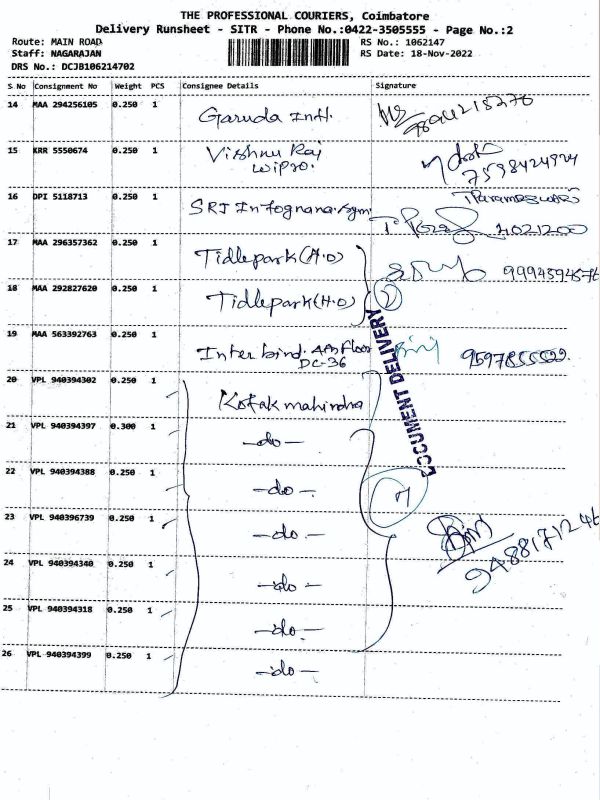 THE PROFESSIONAL COURIERS, Coimbatore
Delivery Runsheet - SITR - Phone No.:0422-3505555 - Page No.:2
Route: MAIN ROAD RS No.: 1062147
Staff: NAGARAJAN RS Date: 18-Nov-2022
DRS No.: DCJB106214702
S No Consignment No Weight PCS Consignee Details Signature
14 MAA 294256105 0.250 1 Garuda Intl.
15 KRR 5550674 0.250 1 Vishnu Raj
Wipro. 7598424924
16 DPI 5118713 0.250 1
17 MAA 296357362 0.250 1 Tidlepark(H.O)
18 MAA 292827620 0.250 1 Tidlepark(H.O) 2
19 MAA 563392763 0.250 1 Inter bind. 4th Floor
DC-36
DOCUMENT DELIVERY
20 VPL 940394302 0.250 1 Kotak mahindra
21 VPL 940394397 0.300 1 -do-
22 VPL 940394388 0.250 1 -do- 7
23 VPL 940396739 0.250 1 -do- 9488171246
24 VPL 940394340 0.250 1 -do-
25 VPL 940394318 0.250 1 -do-
26 VPL 940394399 0.250 1 -do-